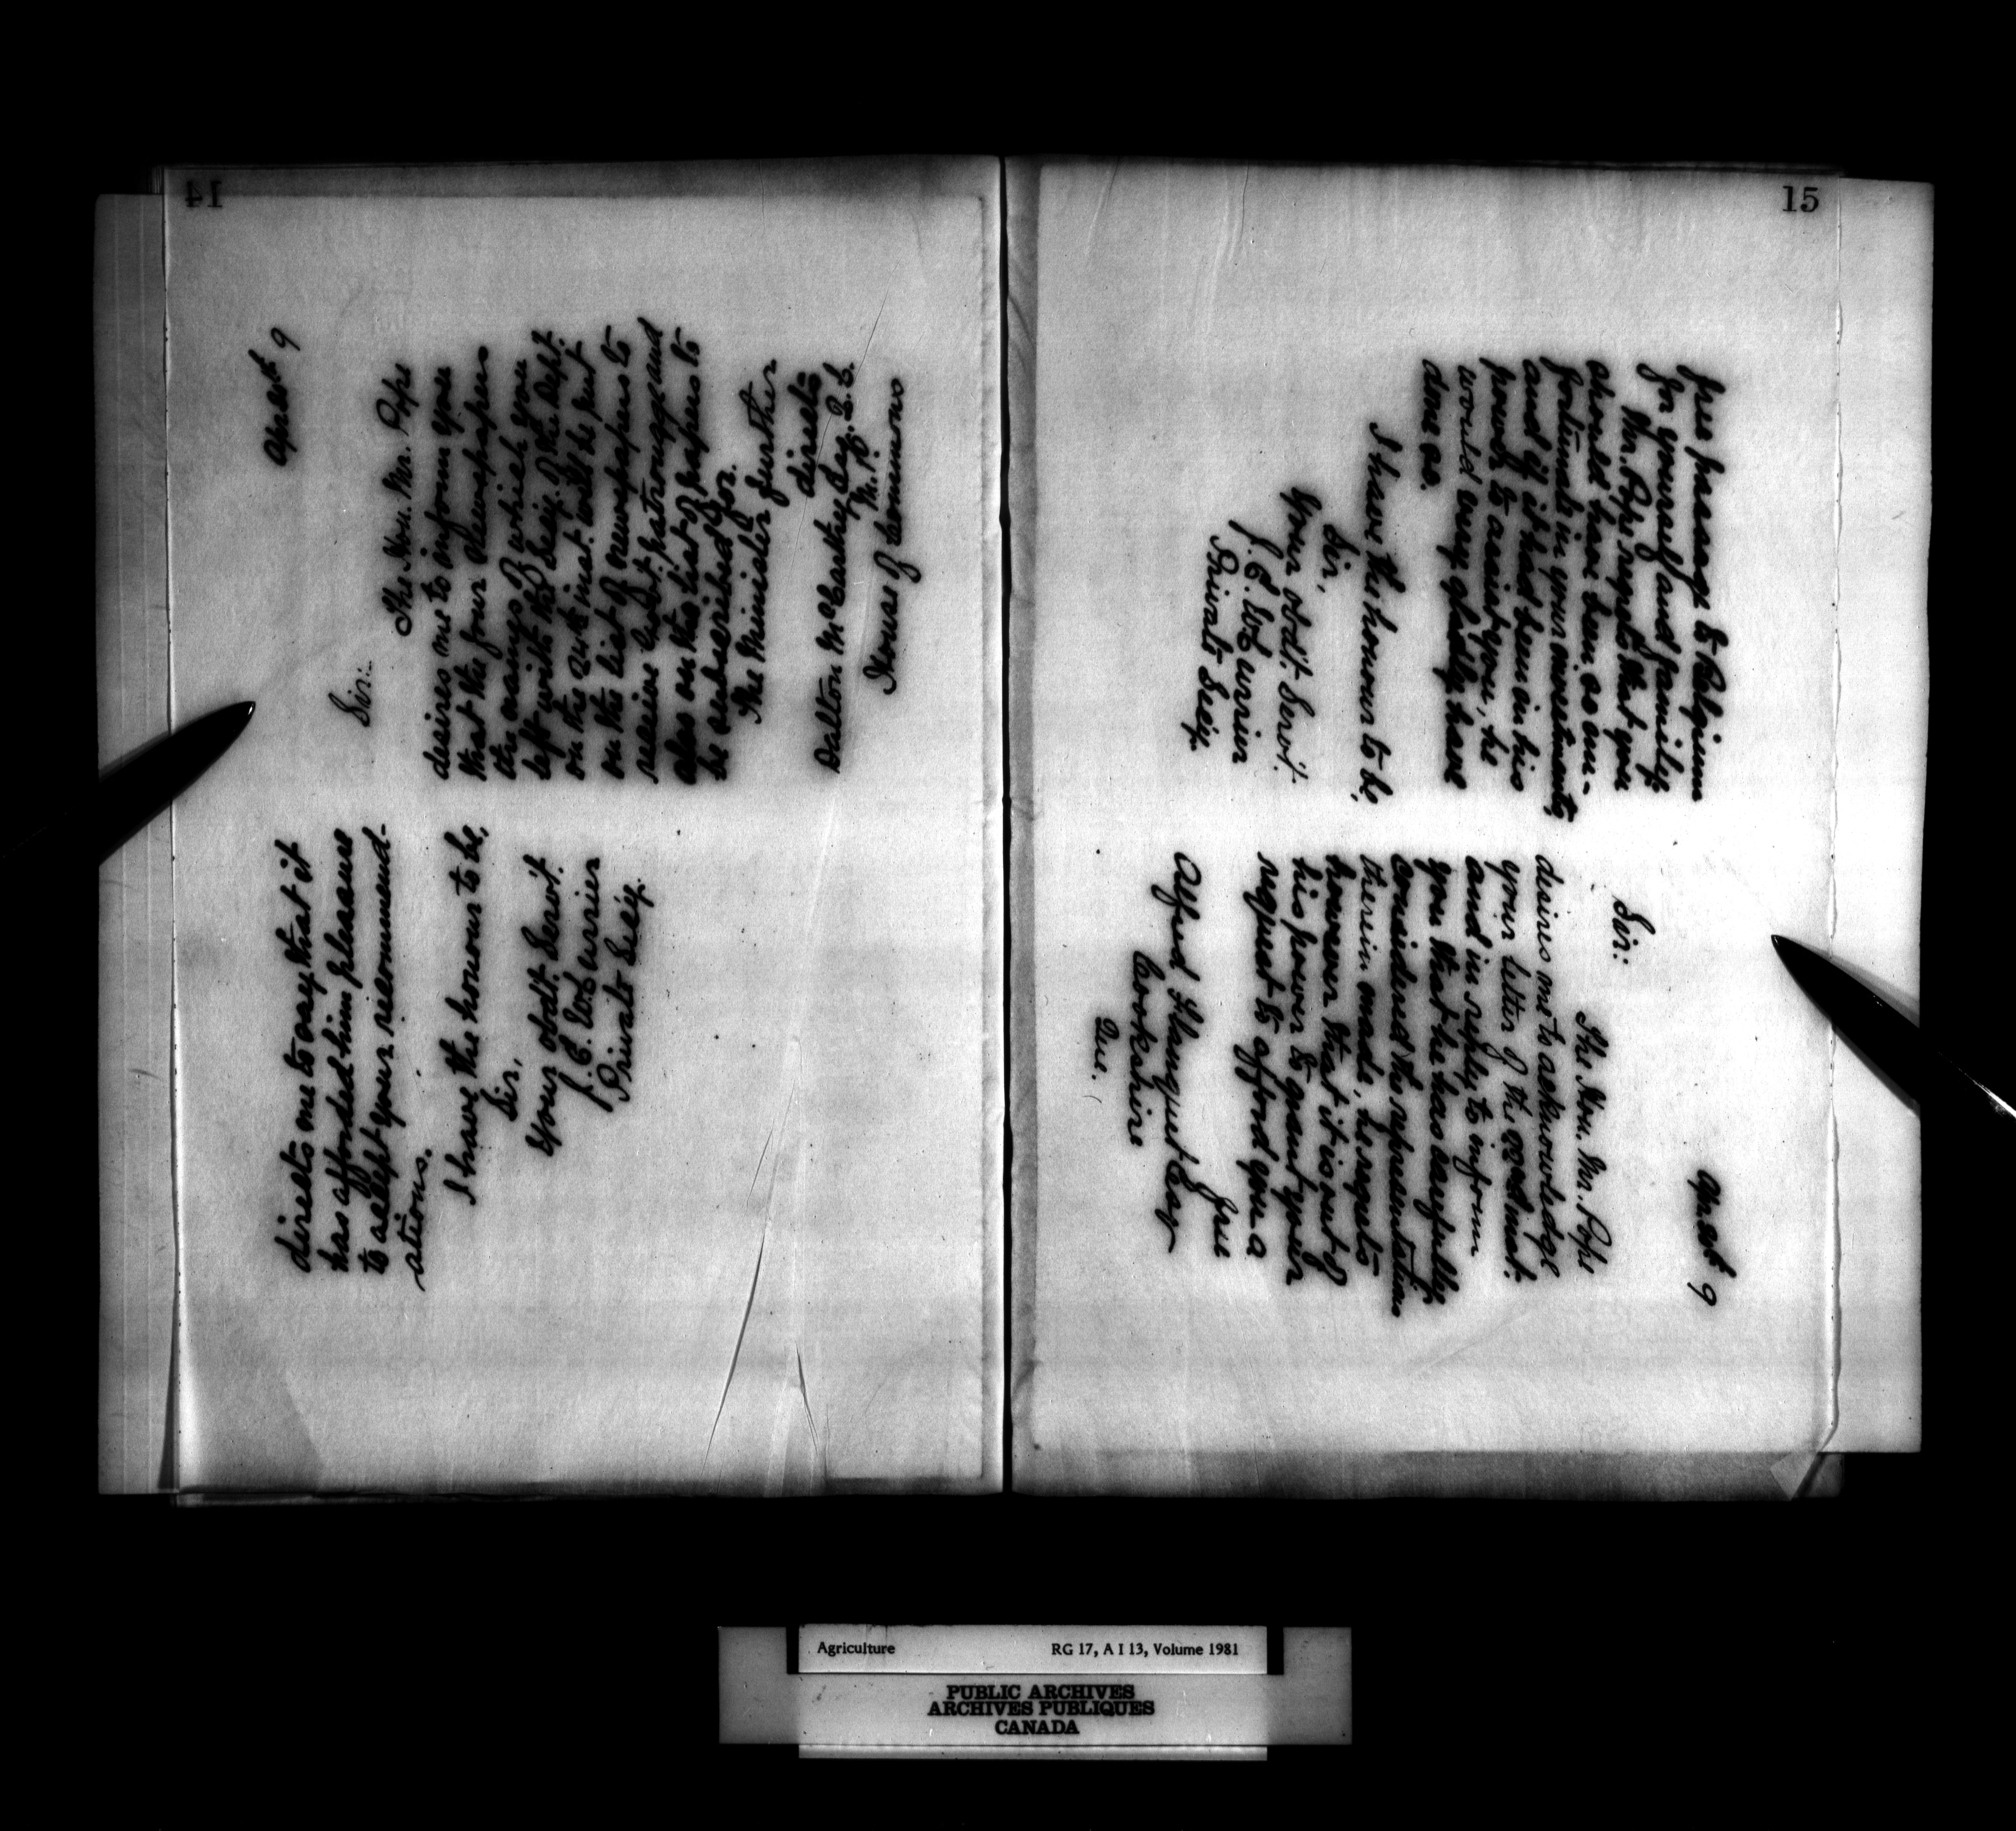 14
April 9
Sir:
The Hon. Mr. Pope
desires me to inform you
that the four Newspapers
the names of which you
left with the Secy. of the Dept.
on the inst. will be put
on the list of newspapers to
receive Govt patronage and
also on the list of papers to
be subscribed for.
The Minister further
directs
Dalton McCarthy Esq. Q.C.
M.P.
House of Commons
directs me to say that it
has afforded him pleasure
to accept your recommend-
ations.
I have the honour to be,
Sir,
Your obdt. Servt.
Private Secy.
15
April 9
Sir:
The Hon. Mr. Pope
desires me to acknowledge
your letter of the inst:
and in reply to inform
you that he has carefully
considered the representation
therein made, he regrets
however that it is out of
his power to grant your
request to afford you a
free
Alfred
Cookshire
Que.
free passage to Belgium
for yourself and family.
Mr. Pope regrets that you
should have been so un-
fortunate in your investments
and if it had been in his
power to assist you, he
would very gladly have
done so.
I have the honour to be,
Sir,
Your obdt. Servt.
Private Secy.
Agriculture RG 17, A I 13, Volume 1981
PUBLIC ARCHIVES
ARCHIVES PUBLIQUES
CANADA